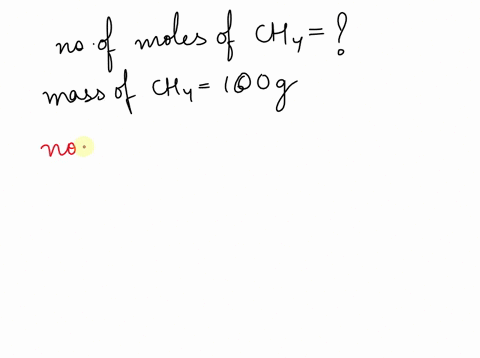 no. of moles of CH4 = ?
mass of CH4 = 100g
no.